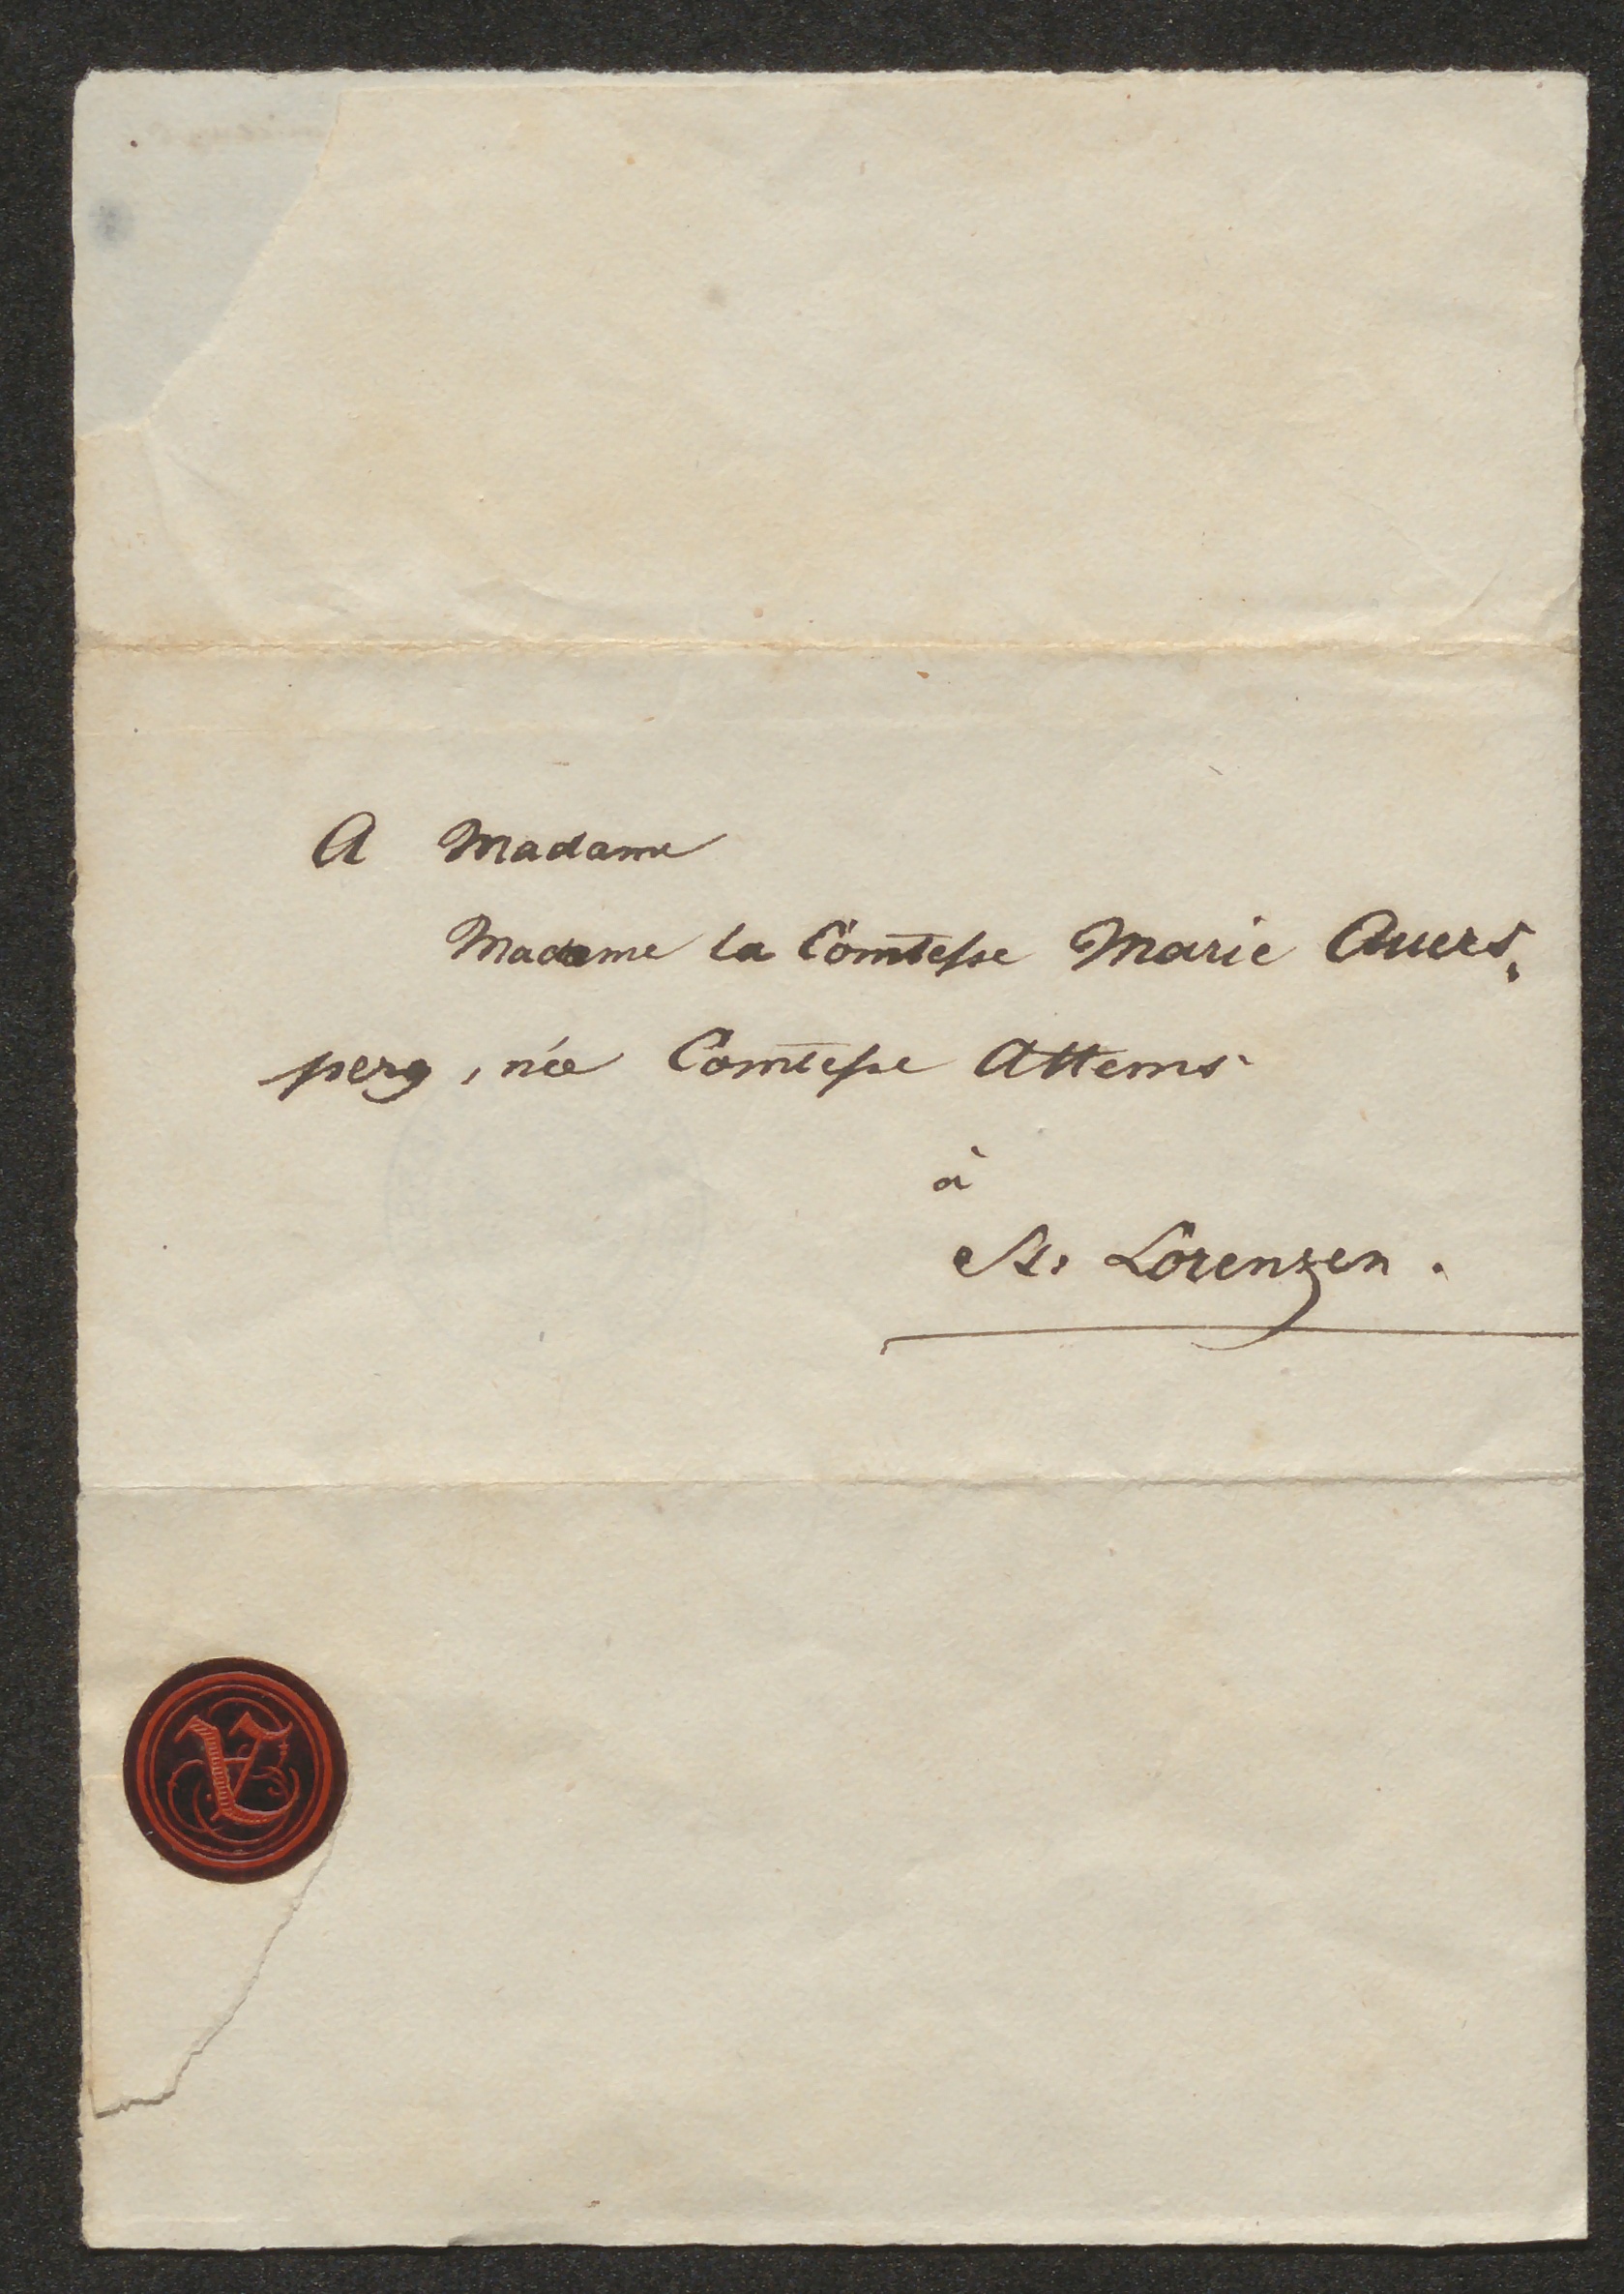 A Madame
Madame la Comtesse Marie Auers-
perg, née Comtesse Attems
à
St. Lorenzen.